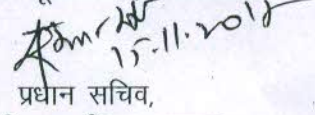 15.11.2012
प्रधान सचिव,